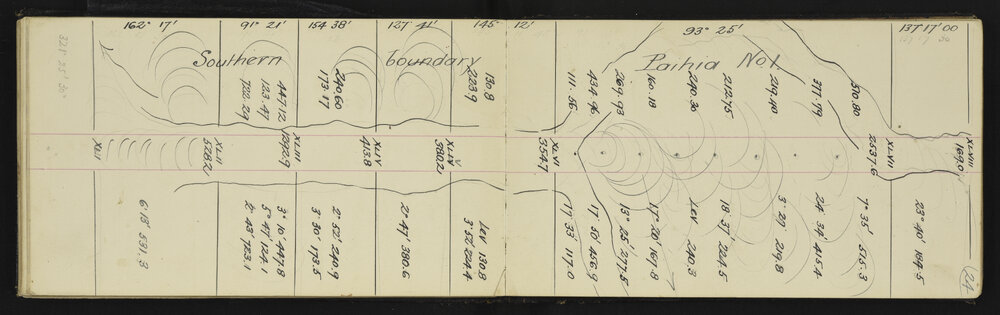 162° 17'
91° 21'
154 38'
127° 41'
145° 12'
93° 25'
137°17'00
Southern boundary Paihia No1
447.12
123.47
722.29
240.60
173.17
130.8
223.9
111.56
434.96
269.93
160.18
240.30
212.75
219.40
377.79
510.80
XLI
XLII
528.2
XLIII
1292.9
XLIV
413.8
XLV
380.2
XLVI
354.7
XLVII
2537.6
XLVIII
169.0
6° 18' 531.3
3° 10' 447.8
5° 47' 124.1
2° 43' 723.1
2° 52' 240.9
3° 30' 173.5
2° 47' 380.6
Lev 130.8
3° 52' 224.4
17° 33' 117.0
17° 50' 456.9
13° 25' 277.5
17° 20' 167.8
Lev 240.3
18° 37' 224.5
3° 29' 219.8
24° 34' 415.4
7° 35' 515.3
23° 40' 184.5
24